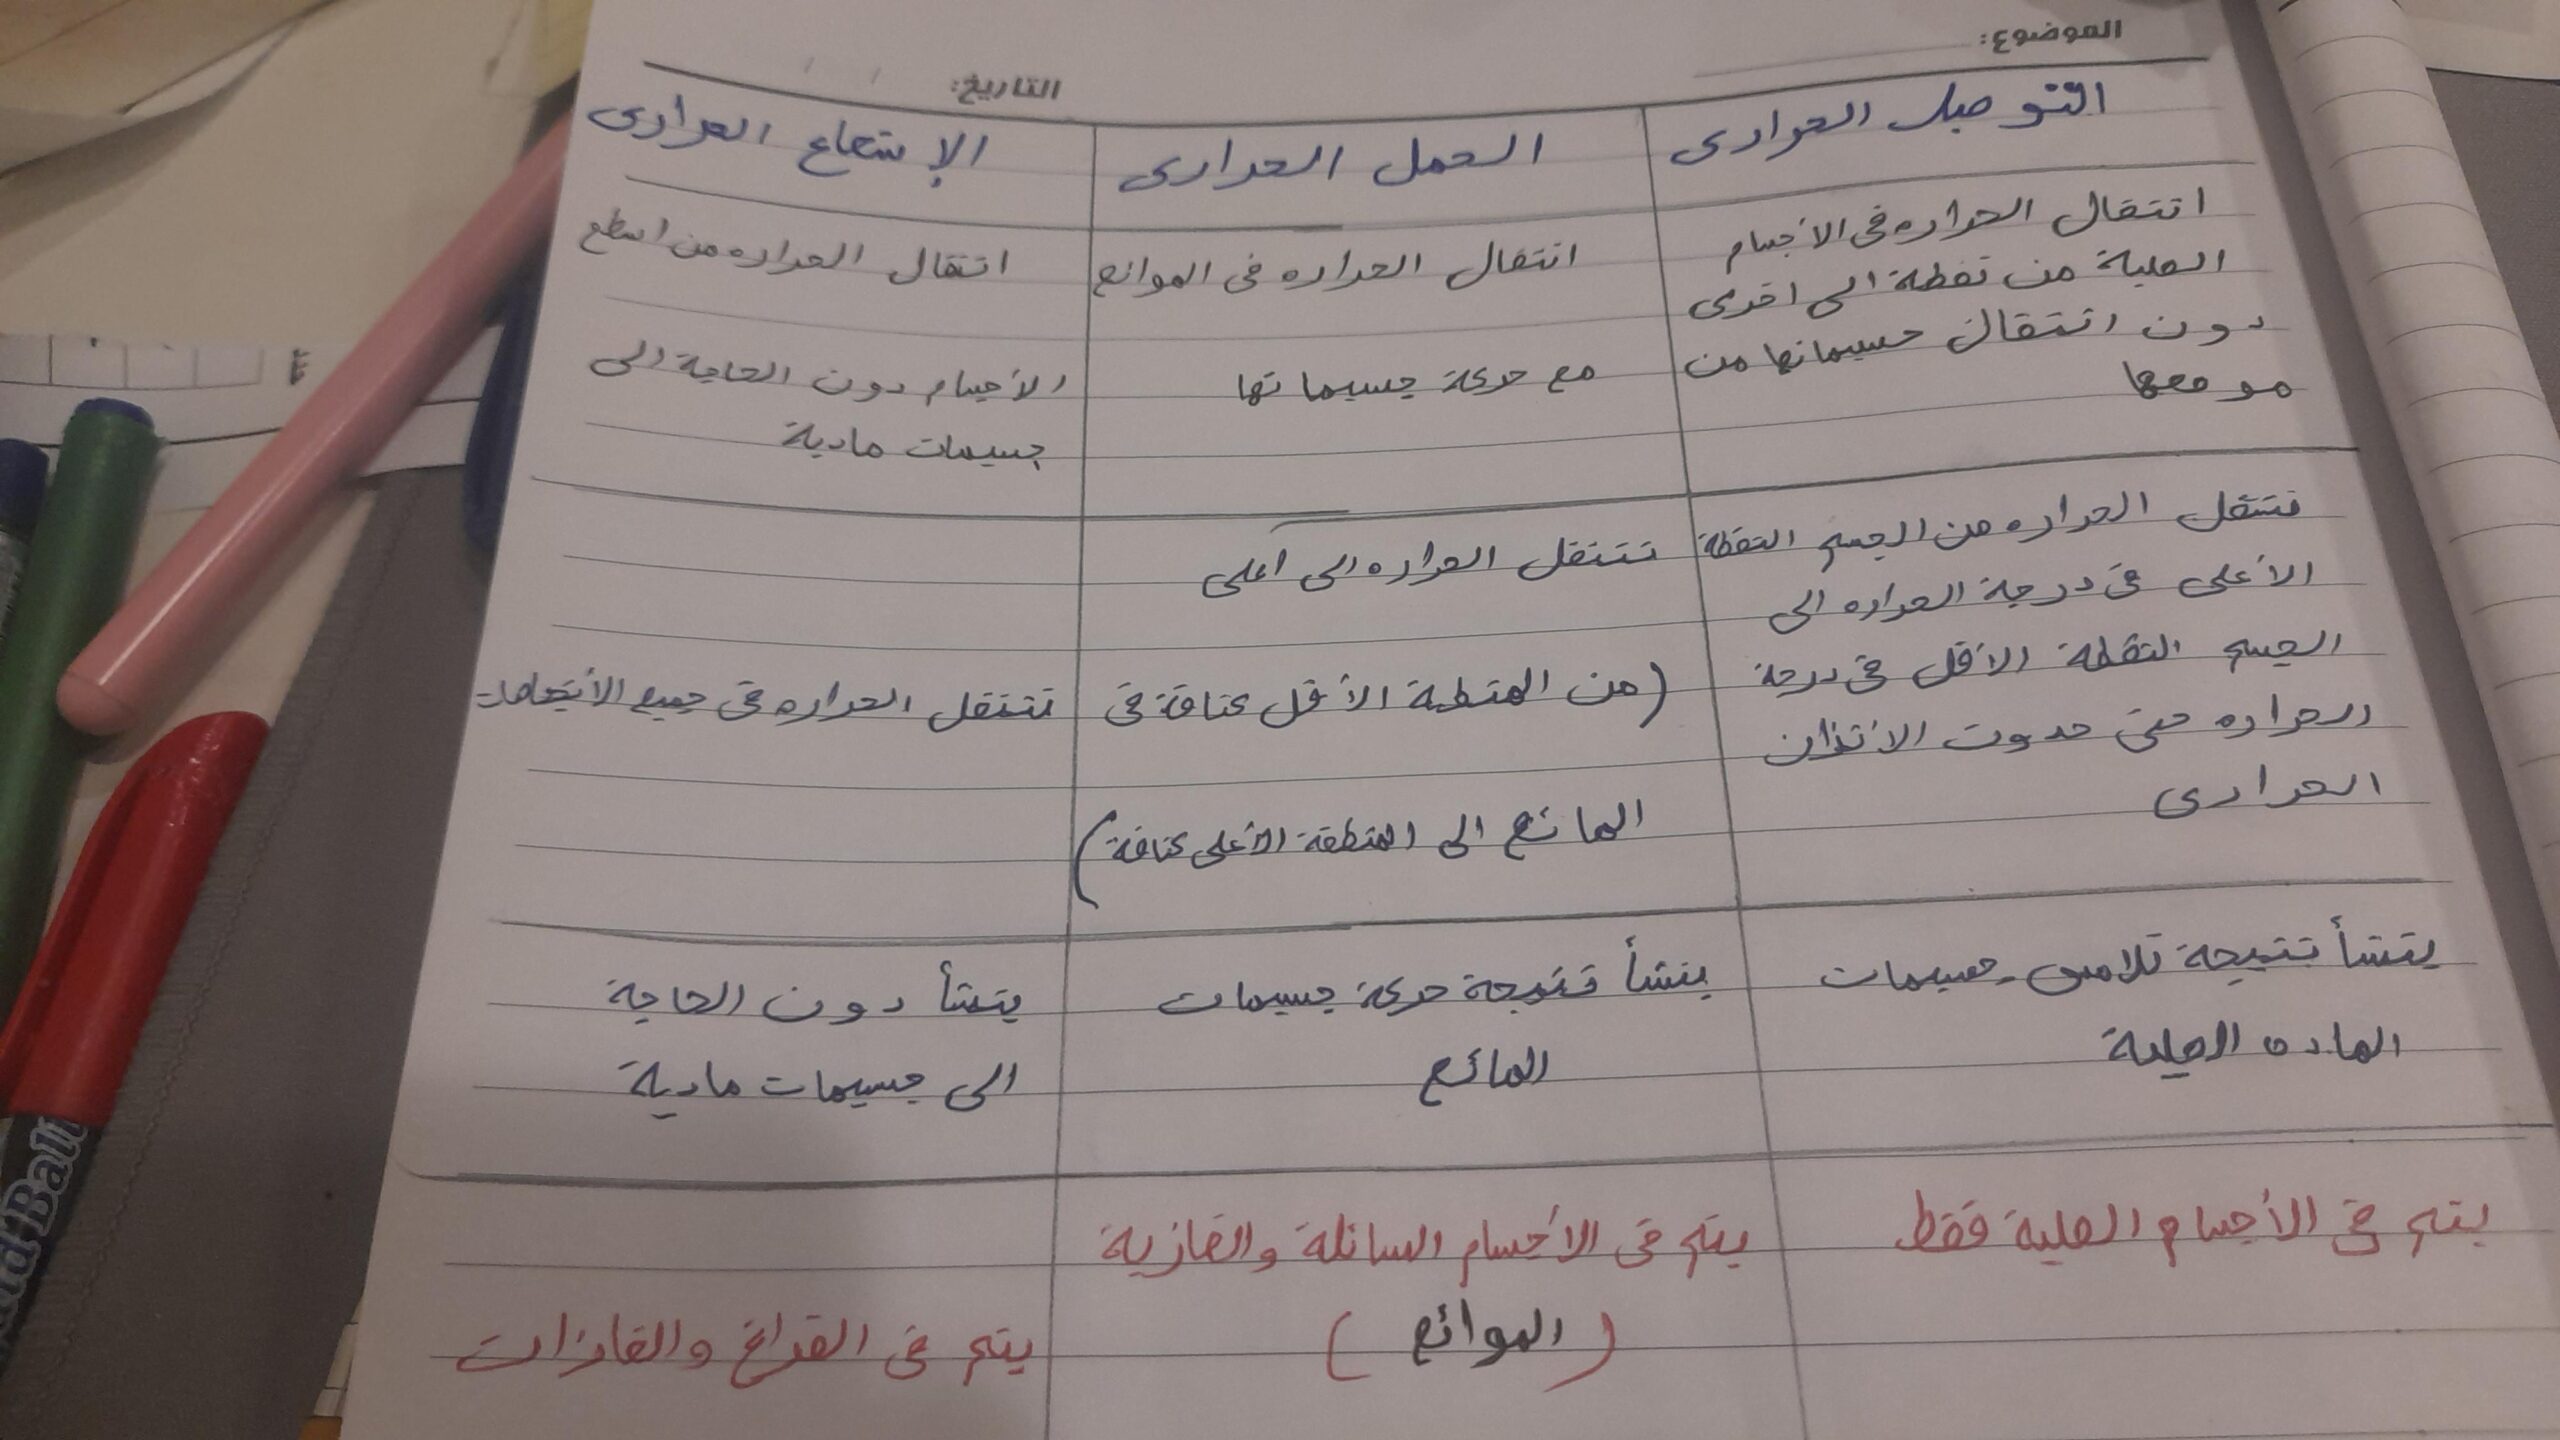 الموضوع:
التاريخ: / /
التوصيل الحرارى
الحمل الحرارى
الإشعاع الحرارى
انتقال الحراره فى الأجسام
الصلبة من نقطة الى اخرى
دون انتقال جسيماتها من
موقعها
انتقال الحراره فى الموائع
مع حركة جسيماتها
انتقال الحراره من اسطح
الأجسام دون الحاجة الى
جسيمات مادية
تنتقل الحراره من الجسم النقطة
الأعلى فى درجة الحراره الى
الجسم النقطة الأقل فى درجة
الحراره حتى حدوث الأتزان
الحرارى
تنتقل الحراره الى أعلى
(من المنطقة الأقل كثافة فى
المائع الى المنطقة الأعلى كثافة)
تنتقل الحراره فى جميع الأتجاهات
ينشأ نتيجة تلامس جسيمات
الماده الصلبة
ينشأ نتيجة حركة جسيمات
المائع
ينشأ دون الحاجة
الى جسيمات مادية
يتم فى الأجسام الصلبة فقط
يتم فى الأجسام السائلة والغازية
(الموائع)
يتم فى الفراغ والغازات
Ball